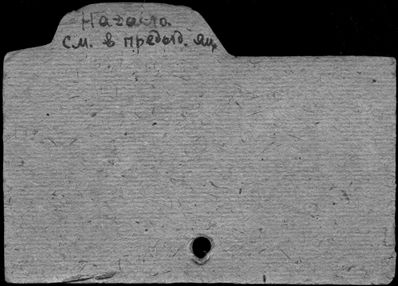 Начало
см. в предыд. ящ.